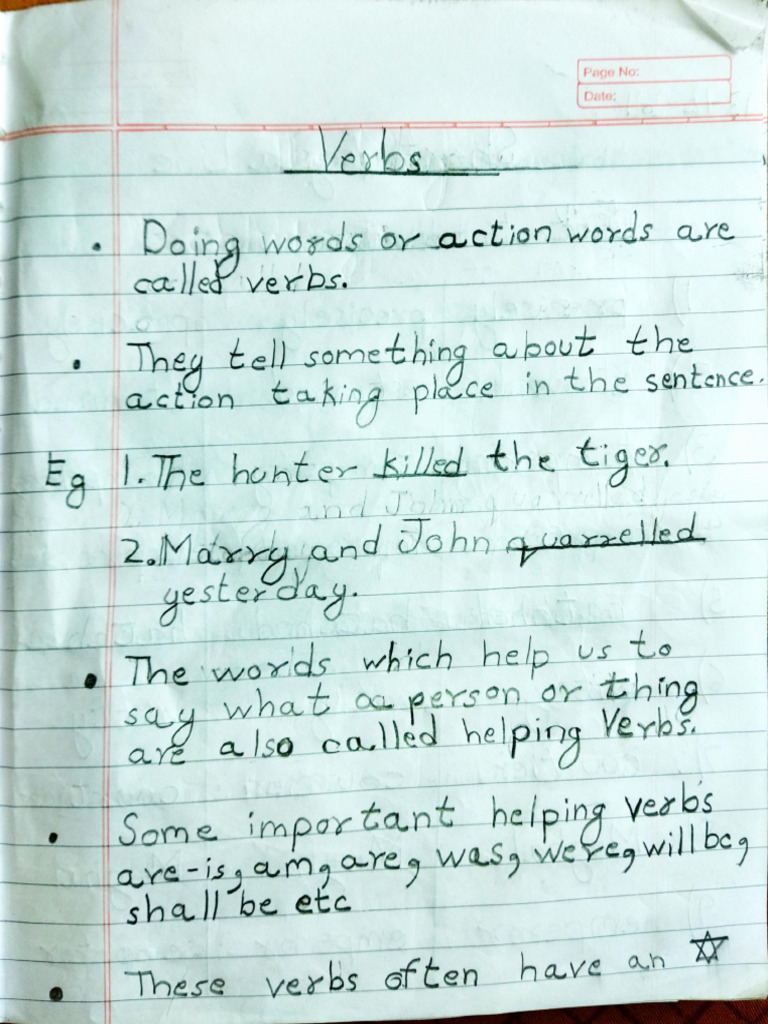 Page No:
Date:
Verbs
• Doing words or action words are
called verbs.
• They tell something about the
action taking place in the sentence.
Eg 1. The hunter killed the tiger.
2. Marry and John quarrelled
yesterday.
• The words which help us to
say what a person or thing
are also called helping Verbs.
• Some important helping verbs
are - is, am, are, was, were, will be,
shall be etc
• These verbs often have an ☆